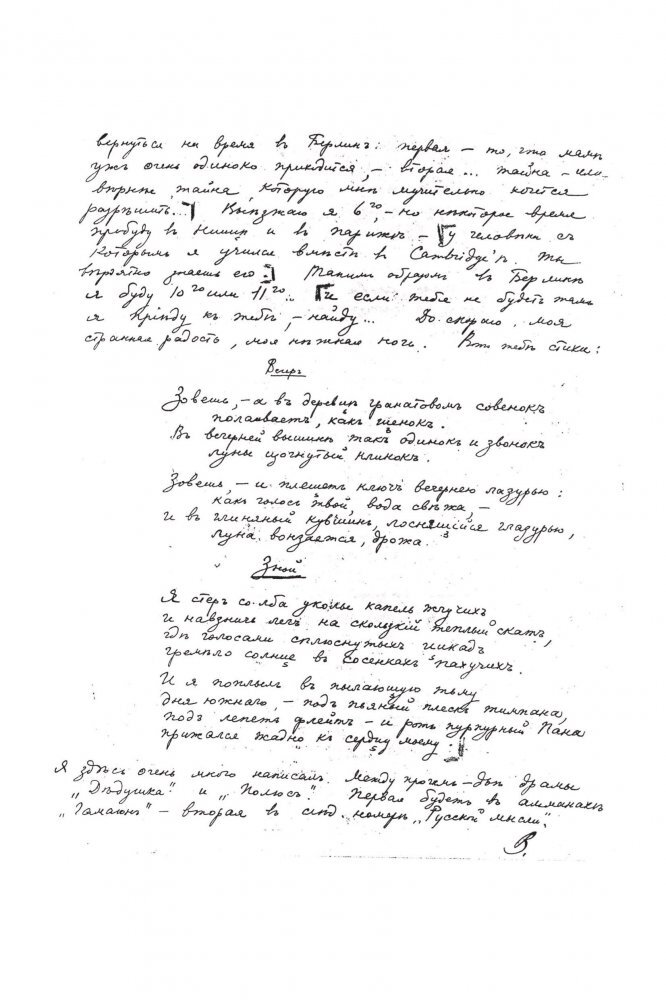 вернуться на время въ Берлинъ: первая — то, что мамѣ
ужъ очень одиноко приходится, — вторая... тайна — или
вѣрнѣе, тайна, которую мнѣ мучительно хочется
разрѣшить...] Выѣзжаю я 6го, — но нѣкоторое время
пробуду въ Ниццѣ и въ Парижѣ — [у человѣка съ
которымъ я учился вмѣстѣ въ Cambridge'ѣ. Ты
вѣроятно знаешь его:] Такимъ образомъ въ Берлинѣ
я буду 10го или 11го.. [и если тебя не будетъ тамъ
я приѣду къ тебѣ, — найду... До скораго, моя
странная радость, моя нѣжная ночь. Вотъ тебѣ стихи:
Вечеръ
Зовешь, — а въ деревцѣ гранатовомъ совенокъ
полаиваетъ, какъ щенокъ.
Въ вечерней вышинѣ такъ одинокъ и звонокъ
луны изогнутый клинокъ.
Зовешь, — и плещетъ ключъ вечернею лазурью:
какъ голосъ твой, вода свѣжа, —
и въ глиняный кувшинъ, лоснящійся глазурью,
луна вонзается, дрожа.
Зной
Я стеръ со лба уколы капель жгучихъ
и навзничь легъ на скользкій теплый скатъ,
гдѣ голосами сплюснутыхъ цикадъ
гремѣло солнце въ сосенкахъ пахучихъ.
И я поплылъ въ пылающую тьму
дня южнаго, — подъ пьяный плескъ тимпана,
подъ лепетъ флейтъ — и ротъ пурпурный Пана
прижался жадно къ сердцу моему.]
Я здѣсь очень много написалъ. Между прочемъ — двѣ драмы
„Дѣдушка" и „Полюсъ". Первая будетъ въ альманахѣ
„Гамаюнъ" — вторая въ слѣд. номерѣ „Русской мысли".
В.